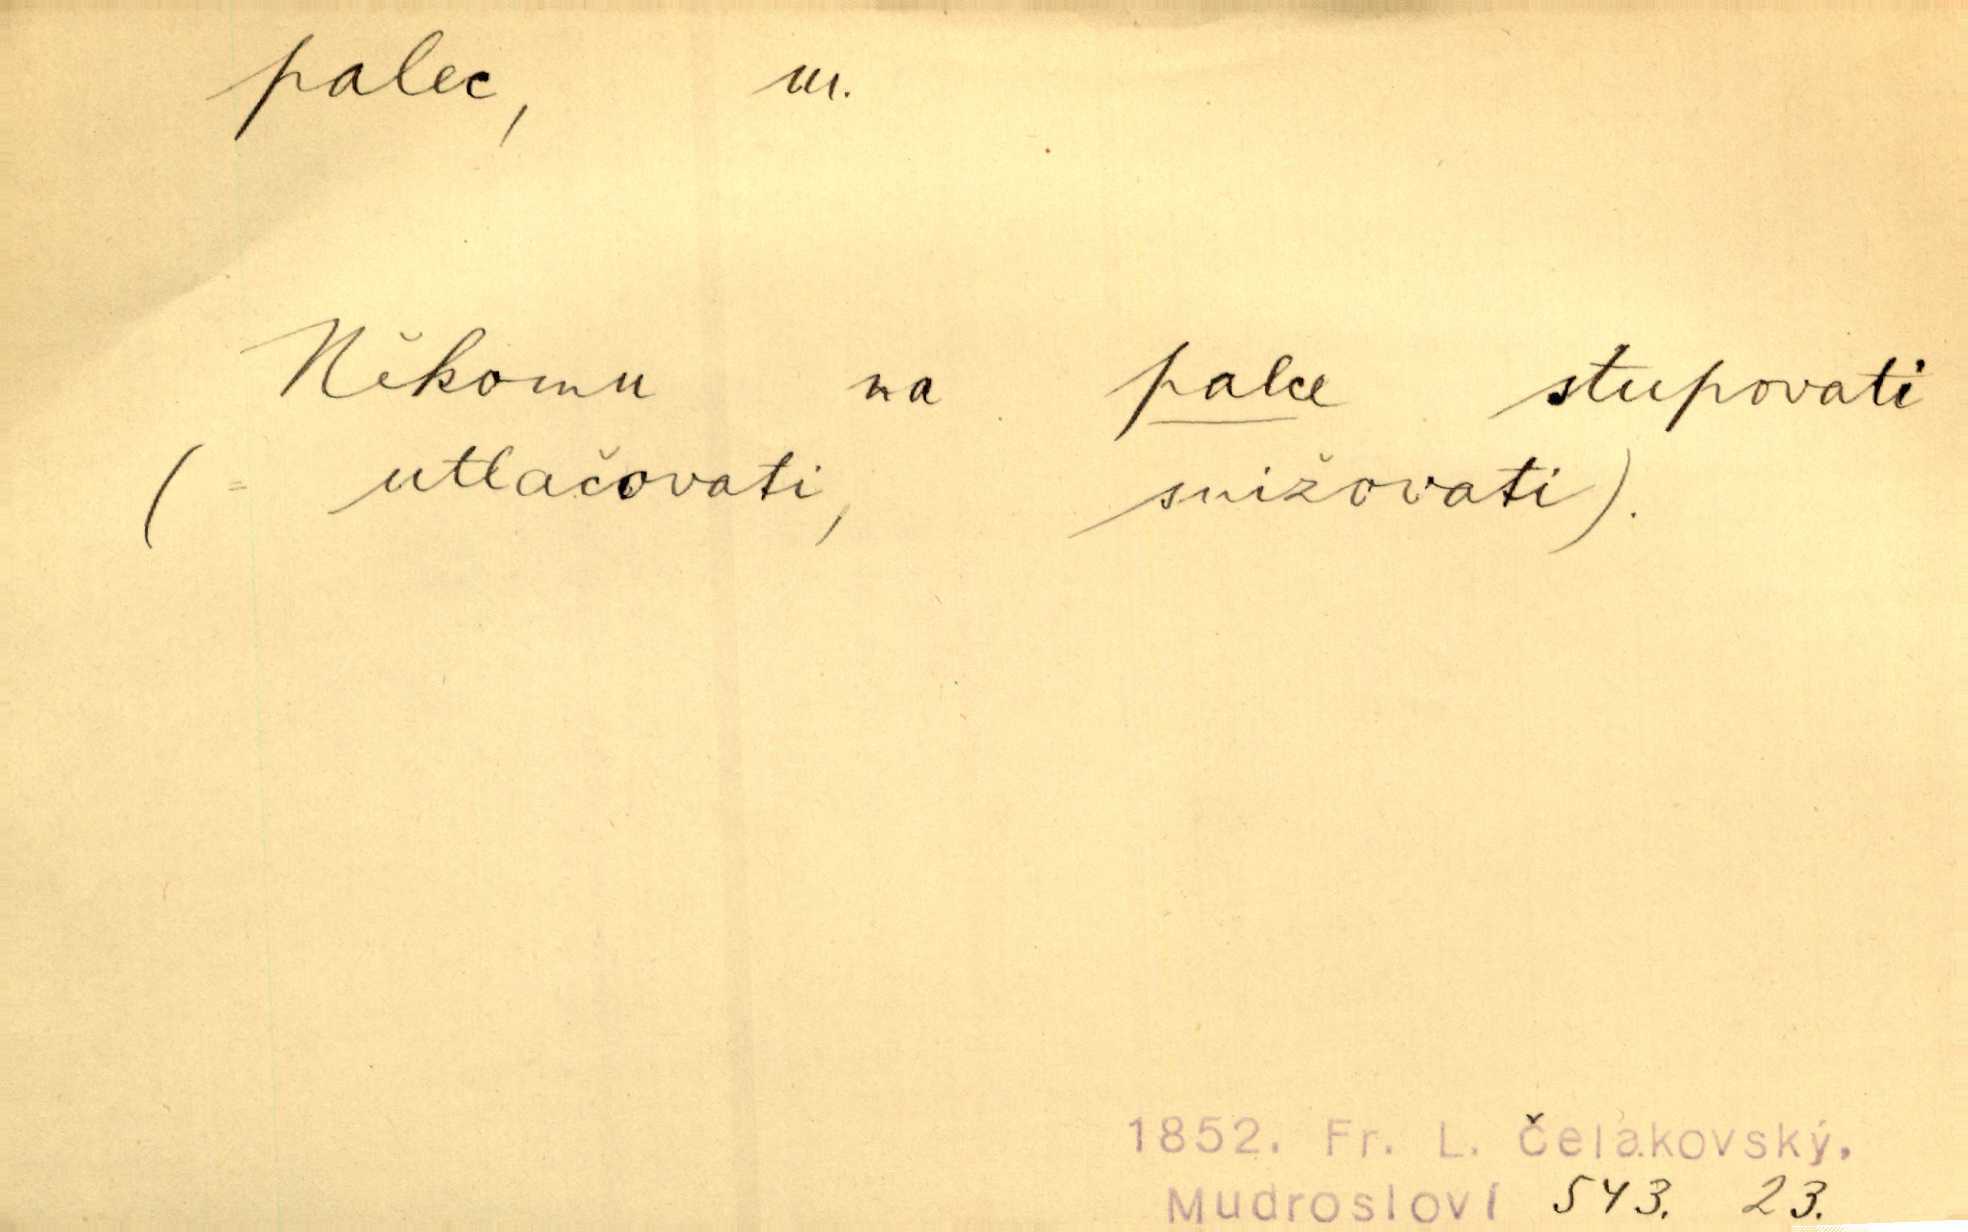 palec, m.
Někomu na palce stupovati
(= utlačovati, snižovati).
1852. Fr. L. Čelakovský.
Mudrosloví 543. 23.